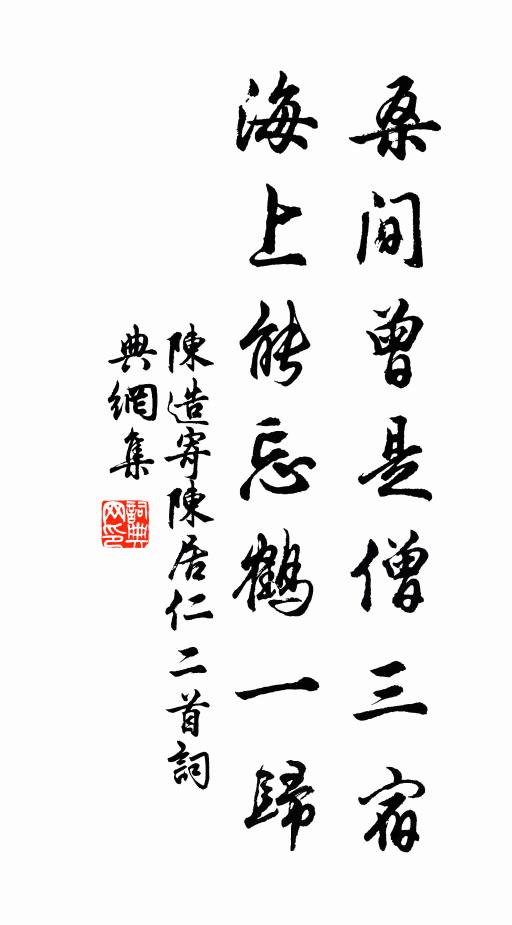 桑間曾是僧三宿
海上能忘鶴一歸
陳造寄陳居仁二首詞
典網集
詞典網印